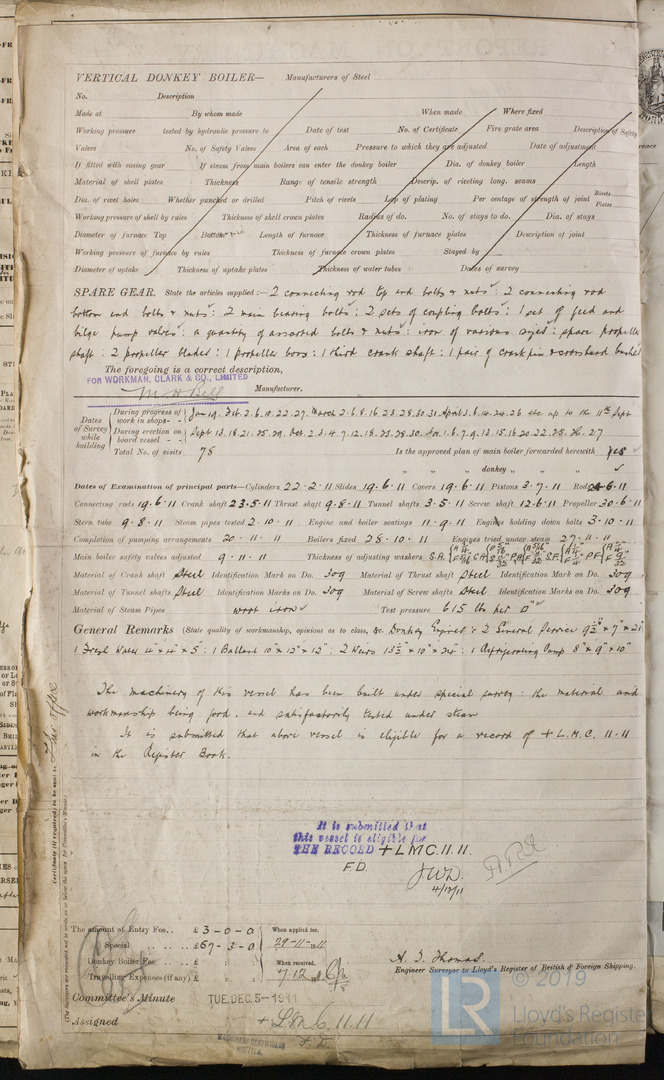 VERTICAL DONKEY BOILER— Manufacturers of Steel
No. Description
Made at By whom made When made Where fixed
Working pressure tested by hydraulic pressure to Date of test No. of Certificate Fire grate area Description of Safety
Valves No. of Safety Valves Area of each Pressure to which they are adjusted Date of adjustment
If fitted with easing gear If steam from main boilers can enter the donkey boiler Dia. of donkey boiler Length
Material of shell plates Thickness Range of tensile strength Descrip. of riveting long. seams
Dia. of rivet holes Whether punched or drilled Pitch of rivets Lap of plating Per centage of strength of joint Rivets Plates
Working pressure of shell by rules Thickness of shell crown plates Radius of do. No. of stays to do. Dia. of stays
Diameter of furnace Top Bottom Length of furnace Thickness of furnace plates Description of joint
Working pressure of furnace by rules Thickness of furnace crown plates Stayed by
Diameter of uptake Thickness of uptake plates Thickness of water tubes Dates of survey
SPARE GEAR. State the articles supplied:— 2 connecting rod top end bolts & nuts : 2 connecting rod
bottom end bolts & nuts : 2 main bearing bolts : 2 sets of coupling bolts : 1 set of feed and
bilge pump valves : a quantity of assorted bolts & nuts : iron of various sizes : spare propeller
shaft : 2 propeller blades : 1 propeller boss : 1 third crank shaft : 1 pair of crankpin & crosshead bushes
The foregoing is a correct description,
FOR WORKMAN, CLARK & CO., LIMITED
Manufacturer.
Dates of Survey while building
During progress of work in shops - - Jan 19. Feb. 2. 6. 10. 22. 27. March 2. 6. 8. 16. 23. 28. 30. 31. April 3. 6. 14. 20. 26 etc up to the 11th Sept
During erection on board vessel - - Sept 13. 18. 21. 25. 29. Oct. 2. 3. 4. 7. 12. 18. 23. 28. 30. Nov. 1. 6. 7. 9. 13. 15. 16. 20. 22. 25. 27
Total No. of visits 78 Is the approved plan of main boiler forwarded herewith Yes
" " donkey " " "
Dates of Examination of principal parts—Cylinders 22.2.11 Slides 19.6.11 Covers 19.6.11 Pistons 3.7.11 Rods 6.11
Connecting rods 19.6.11 Crank shaft 23.5.11 Thrust shaft 9.8.11 Tunnel shafts 3.5.11 Screw shaft 12.6.11 Propeller 30.6.11
Stern tube 9.8.11 Steam pipes tested 2.10.11 Engine and boiler seatings 11.9.11 Engines holding down bolts 3.10.11
Completion of pumping arrangements 20.11.11 Boilers fixed 28.10.11 Engines tried under steam 27.11.11
Main boiler safety valves adjusted 9.11.11 Thickness of adjusting washers
Material of Crank shaft Steel Identification Mark on Do. 309 Material of Thrust shaft Steel Identification Mark on Do. 309
Material of Tunnel shafts Steel Identification Marks on Do. 309 Material of Screw shafts Steel Identification Marks on Do. 309
Material of Steam Pipes wrot iron Test pressure 615 lbs per □"
General Remarks (State quality of workmanship, opinions as to class, &c. Donkey Engines : 2 General Service 9½" × 7" × 21"
1 Fresh Water 4" × 4" × 5" : 1 Ballast 10" × 12" × 12" : 2 Weirs 13½" × 10" × 24" : 1 Refrigerating Pump 8" × 9" × 10"
The machinery of this vessel has been built under special survey : the material and
workmanship being good, and satisfactorily tested under steam
It is submitted that above vessel is eligible for a record of + L.M.C. 11.11
in the Register Book.
It is submitted that
this vessel is eligible for
THE RECORD + LMC. 11.11.
F.D.
JWD.
4/12/11
The amount of Entry Fee .. £ 3-0-0 When applied for.
Special .. .. .. £ 67-3-0 29-11-1911
Donkey Boiler Fee .. .. £ : : When received.
Travelling Expenses (if any) £ : : 7.12
A. J. Thomas.
Engineer Surveyor to Lloyd's Register of British & Foreign Shipping.
Committee's Minute TUE. DEC. 5-1911
Assigned + LMC 11.11
F.D.
MACHINERY CERTIFICATE
WRITTEN.
© 2019
LR Lloyd's Register
Foundation